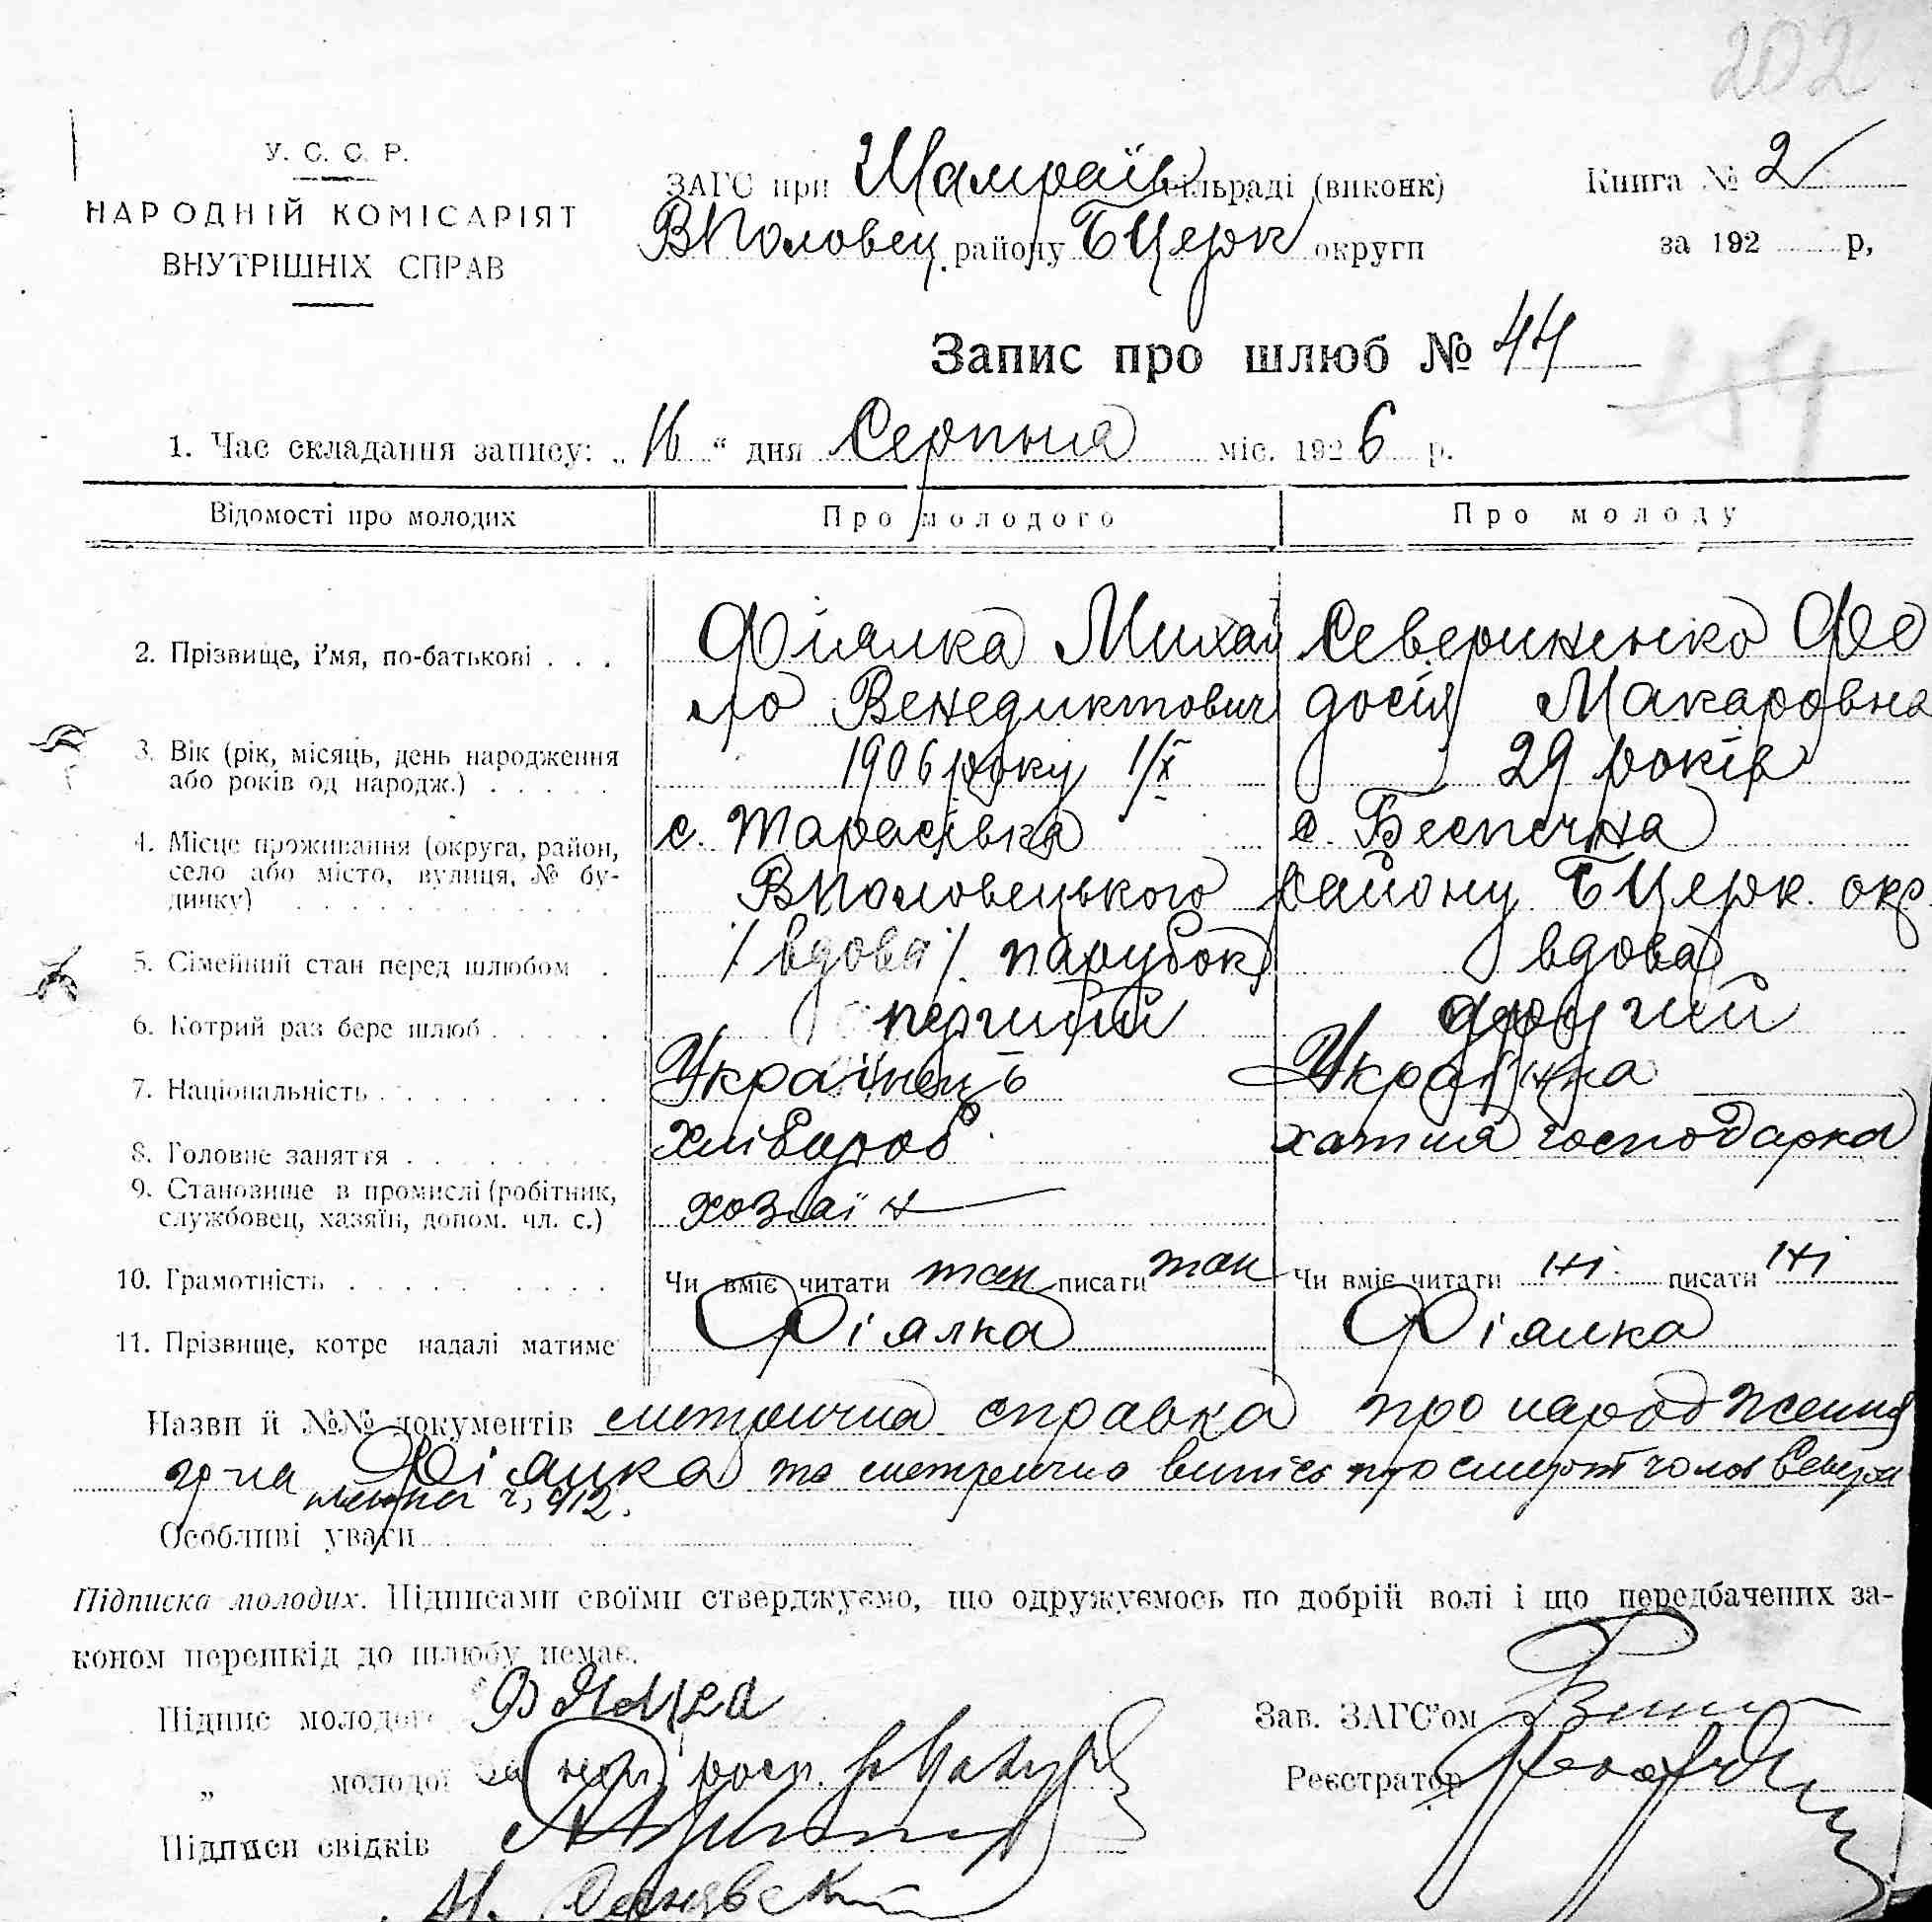 202
У. С. С. Р.
НАРОДНІЙ КОМІСАРІЯТ
ВНУТРІШНІХ СПРАВ
ЗАГС при Шамраїв сільраді (виконк)
ВПоловец. району БЦерк округи
Книга № 2
за 192 р,
Запис про шлюб № 44
44
1. Час складання запису: „ 16 “ дня Серпня міс. 1926 р.
Відомості про молодих Про молодого Про молоду
2. Прізвище, і'мя, по-батькові . . . Фиялка Михай Севериненко Фео
ло Венедиктович досія Макаровна
3. Вік (рік, місяць, день народження 1906 року 1/X 29 років
або років од народж.) . . . . .
4. Місце проживання (округа, район, с. Тарасівка с. Беспечна
село або місто, вулиця, № бу-
динку) ВПоловецького району БЦерк. окр.
5. Сімейний стан перед шлюбом . /вдова/. парубок вдова
6. Котрий раз бере шлюб . . . . . перший другий
7. Національність Українець Українка
8. Головне заняття Хлібороб хатня господарка
9. Становище в промислі (робітник, хозяїн
службовец, хазяїн, допом. чл. с.)
10. Грамотність Чи вміє читати так писати так Чи вміє читати ні писати ні
11. Прізвище, котре надалі матиме Фіялка Фіялка
Назви й №№ документів метрична справка про народження
гр-на Фіялка та метрична випись про смерть чолов Север
ненка ч, 912.
Особливі уваги
Підписка молодих. Підписами своїми стверджуємо, що одружуємось по добрій волі і що передбачених за-
коном перешкід до шлюбу немає.
Підпис молодого
Зав. ЗАГС'ом
„ молодої за непис. росп.
Реєстратор
Підписи свідків